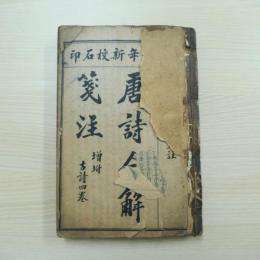 年新校石印
唐詩合解
箋注
增附
古詩四卷